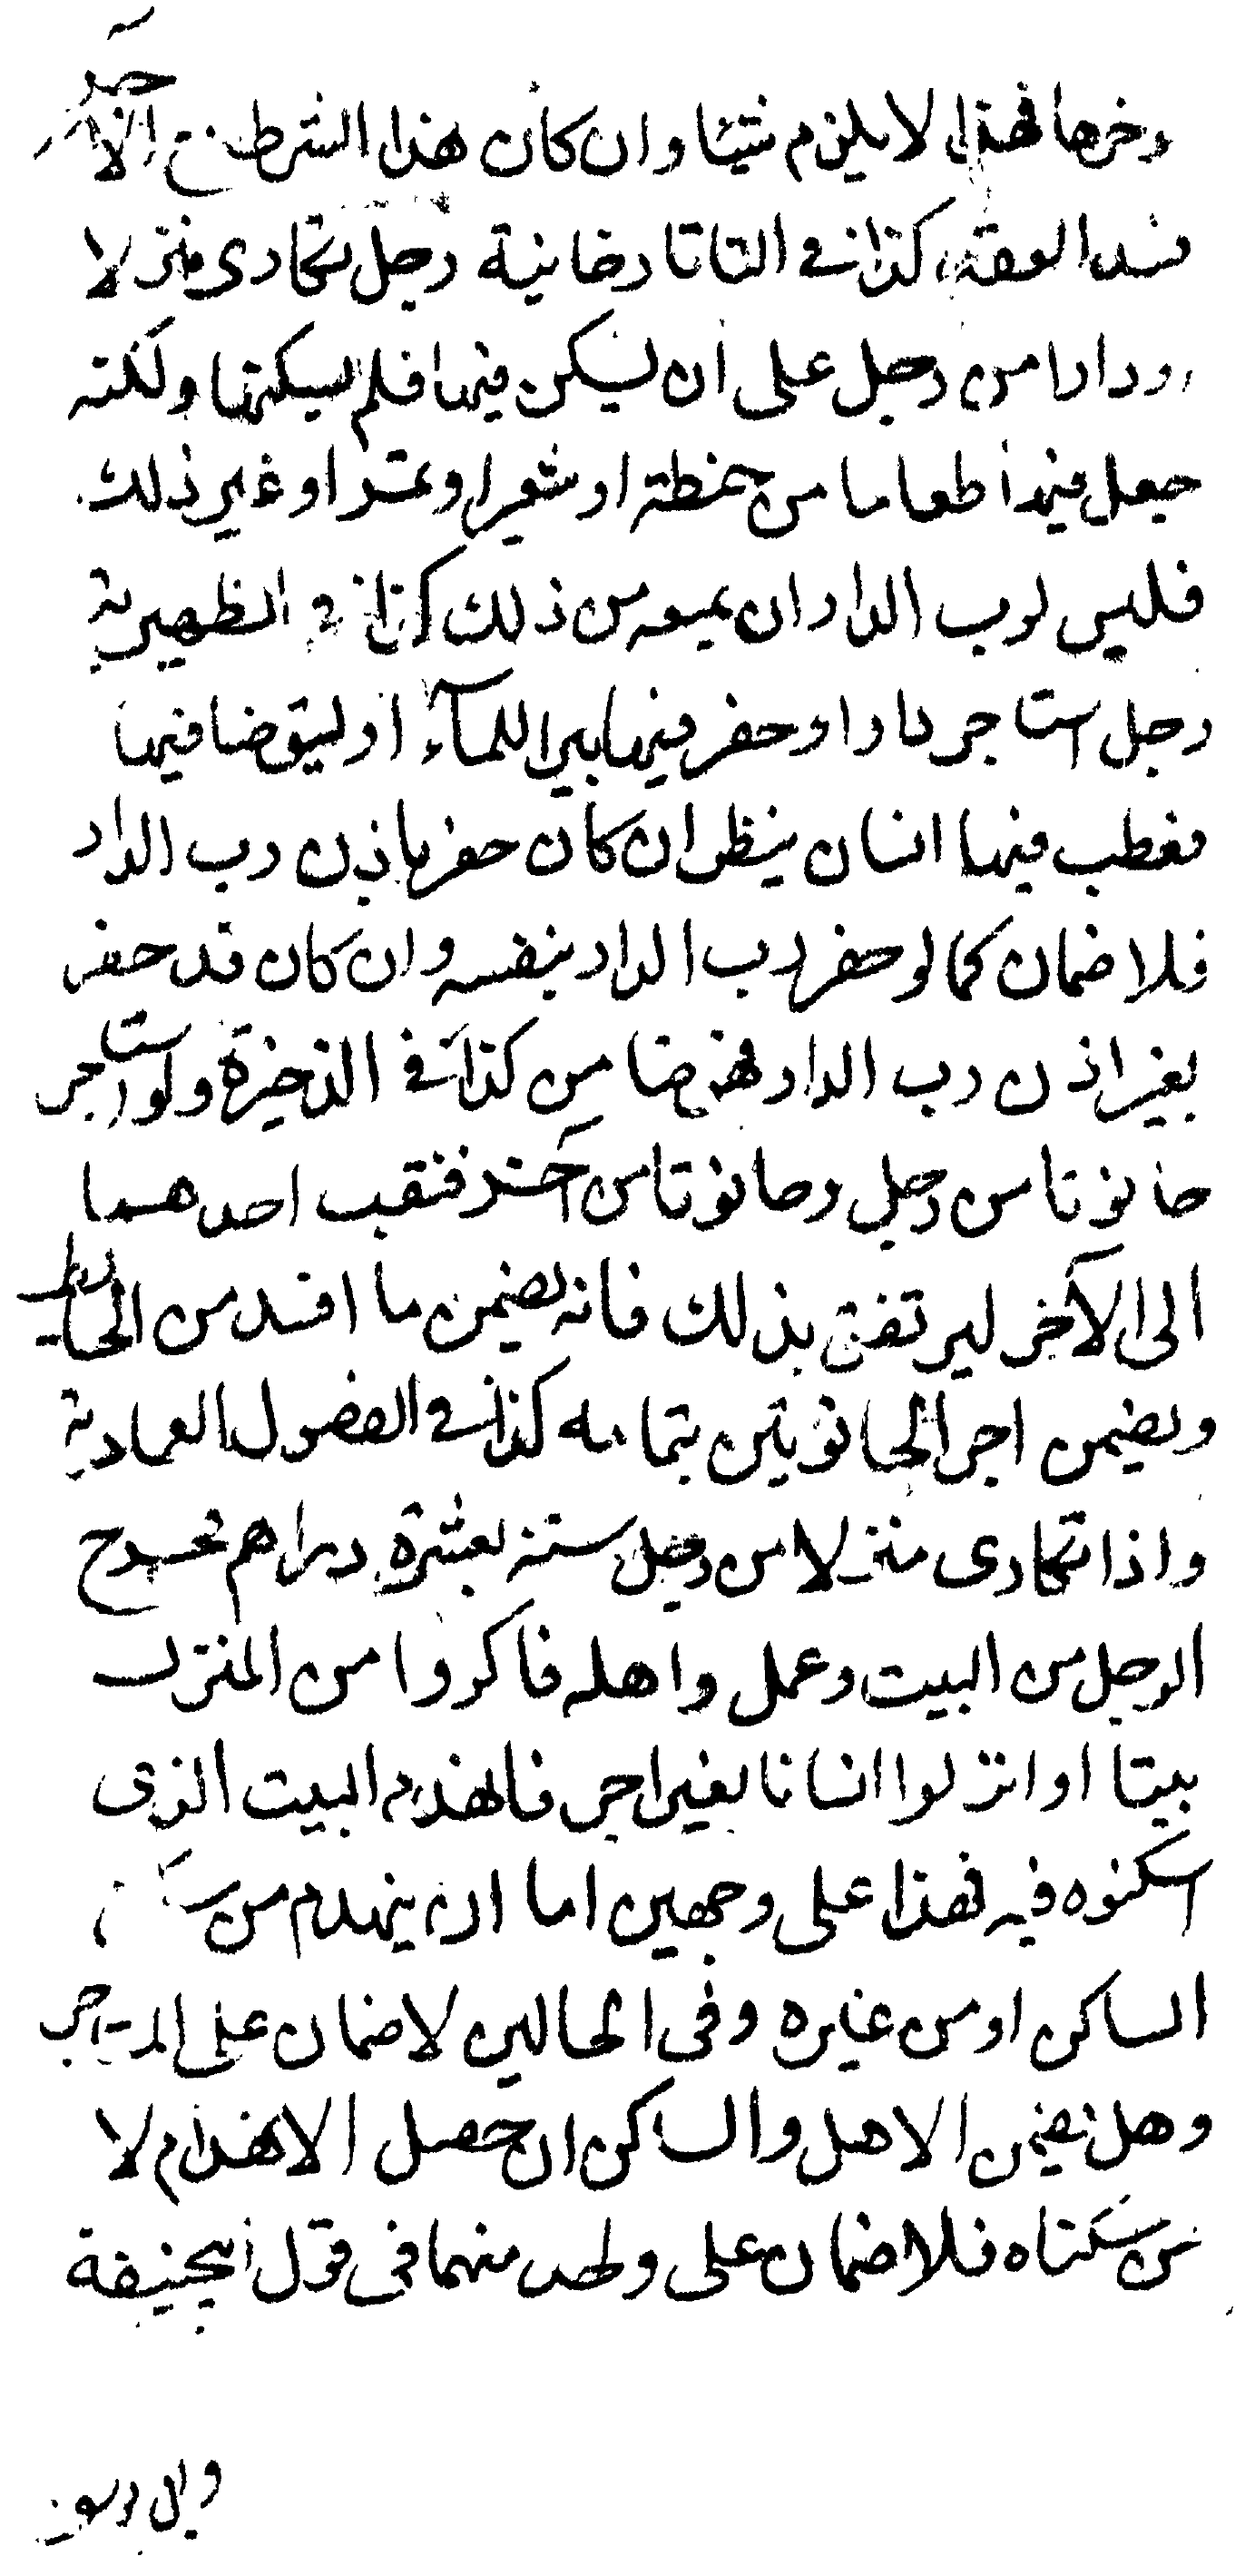 وخرها فهذا لا يلزم شيئا وان كان هذا الشرط في الاخر
فسد العقد كذا في التاتارخانية رجل تكارى منزلا
ودارا من رجل على ان يسكن فيها فلم يسكنها ولكنه
جعل فيها طعاما من حنطة او شعير او تمر او غير ذلك
فليس لرب الدار ان يمنعه من ذلك كذا في الظهيرية
رجل استاجر دارا وحفر فيها بيرا للمآء او ليتوضا فيها
فعطب فيها انسان ينظر ان كان حفر باذن رب الدار
فلا ضمان كما لو حفر رب الدار بنفسه وان كان قد حفر
بغير اذن رب الدار فهو ضامن كذا في الذخيرة ولو استاجر
حانوتا من رجل وحانوتا من آخر فنقب احدهما
الى الآخر ليرتفق بذلك فانه يضمن ما افسد من الحايط
ويضمن اجر الحانوتين بتمامه كذا في الفصول العمادية
واذا تكارى منزلا من رجل سنة بعشرة دراهم فخرج
الرجل من البيت وعمل واهله فاكروا من المنزل
بيتا او انزلوا انسانا بغير اجر فانهدم البيت الذى
اسكنوه فيه فهذا على وجهين اما ان ينهدم من
الساكن او من غيره وفى الحالين لا ضمان على المستاجر
وهل يضمن الاهل والساكن ان حصل الانهدام لا
من سكناه فلا ضمان على واحد منهما فى قول ابيحنيفة
وابى يوسف